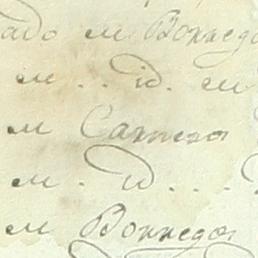 ado en Borrego
en . . id. en
en Carnero
en . id . . . .
en Borrego